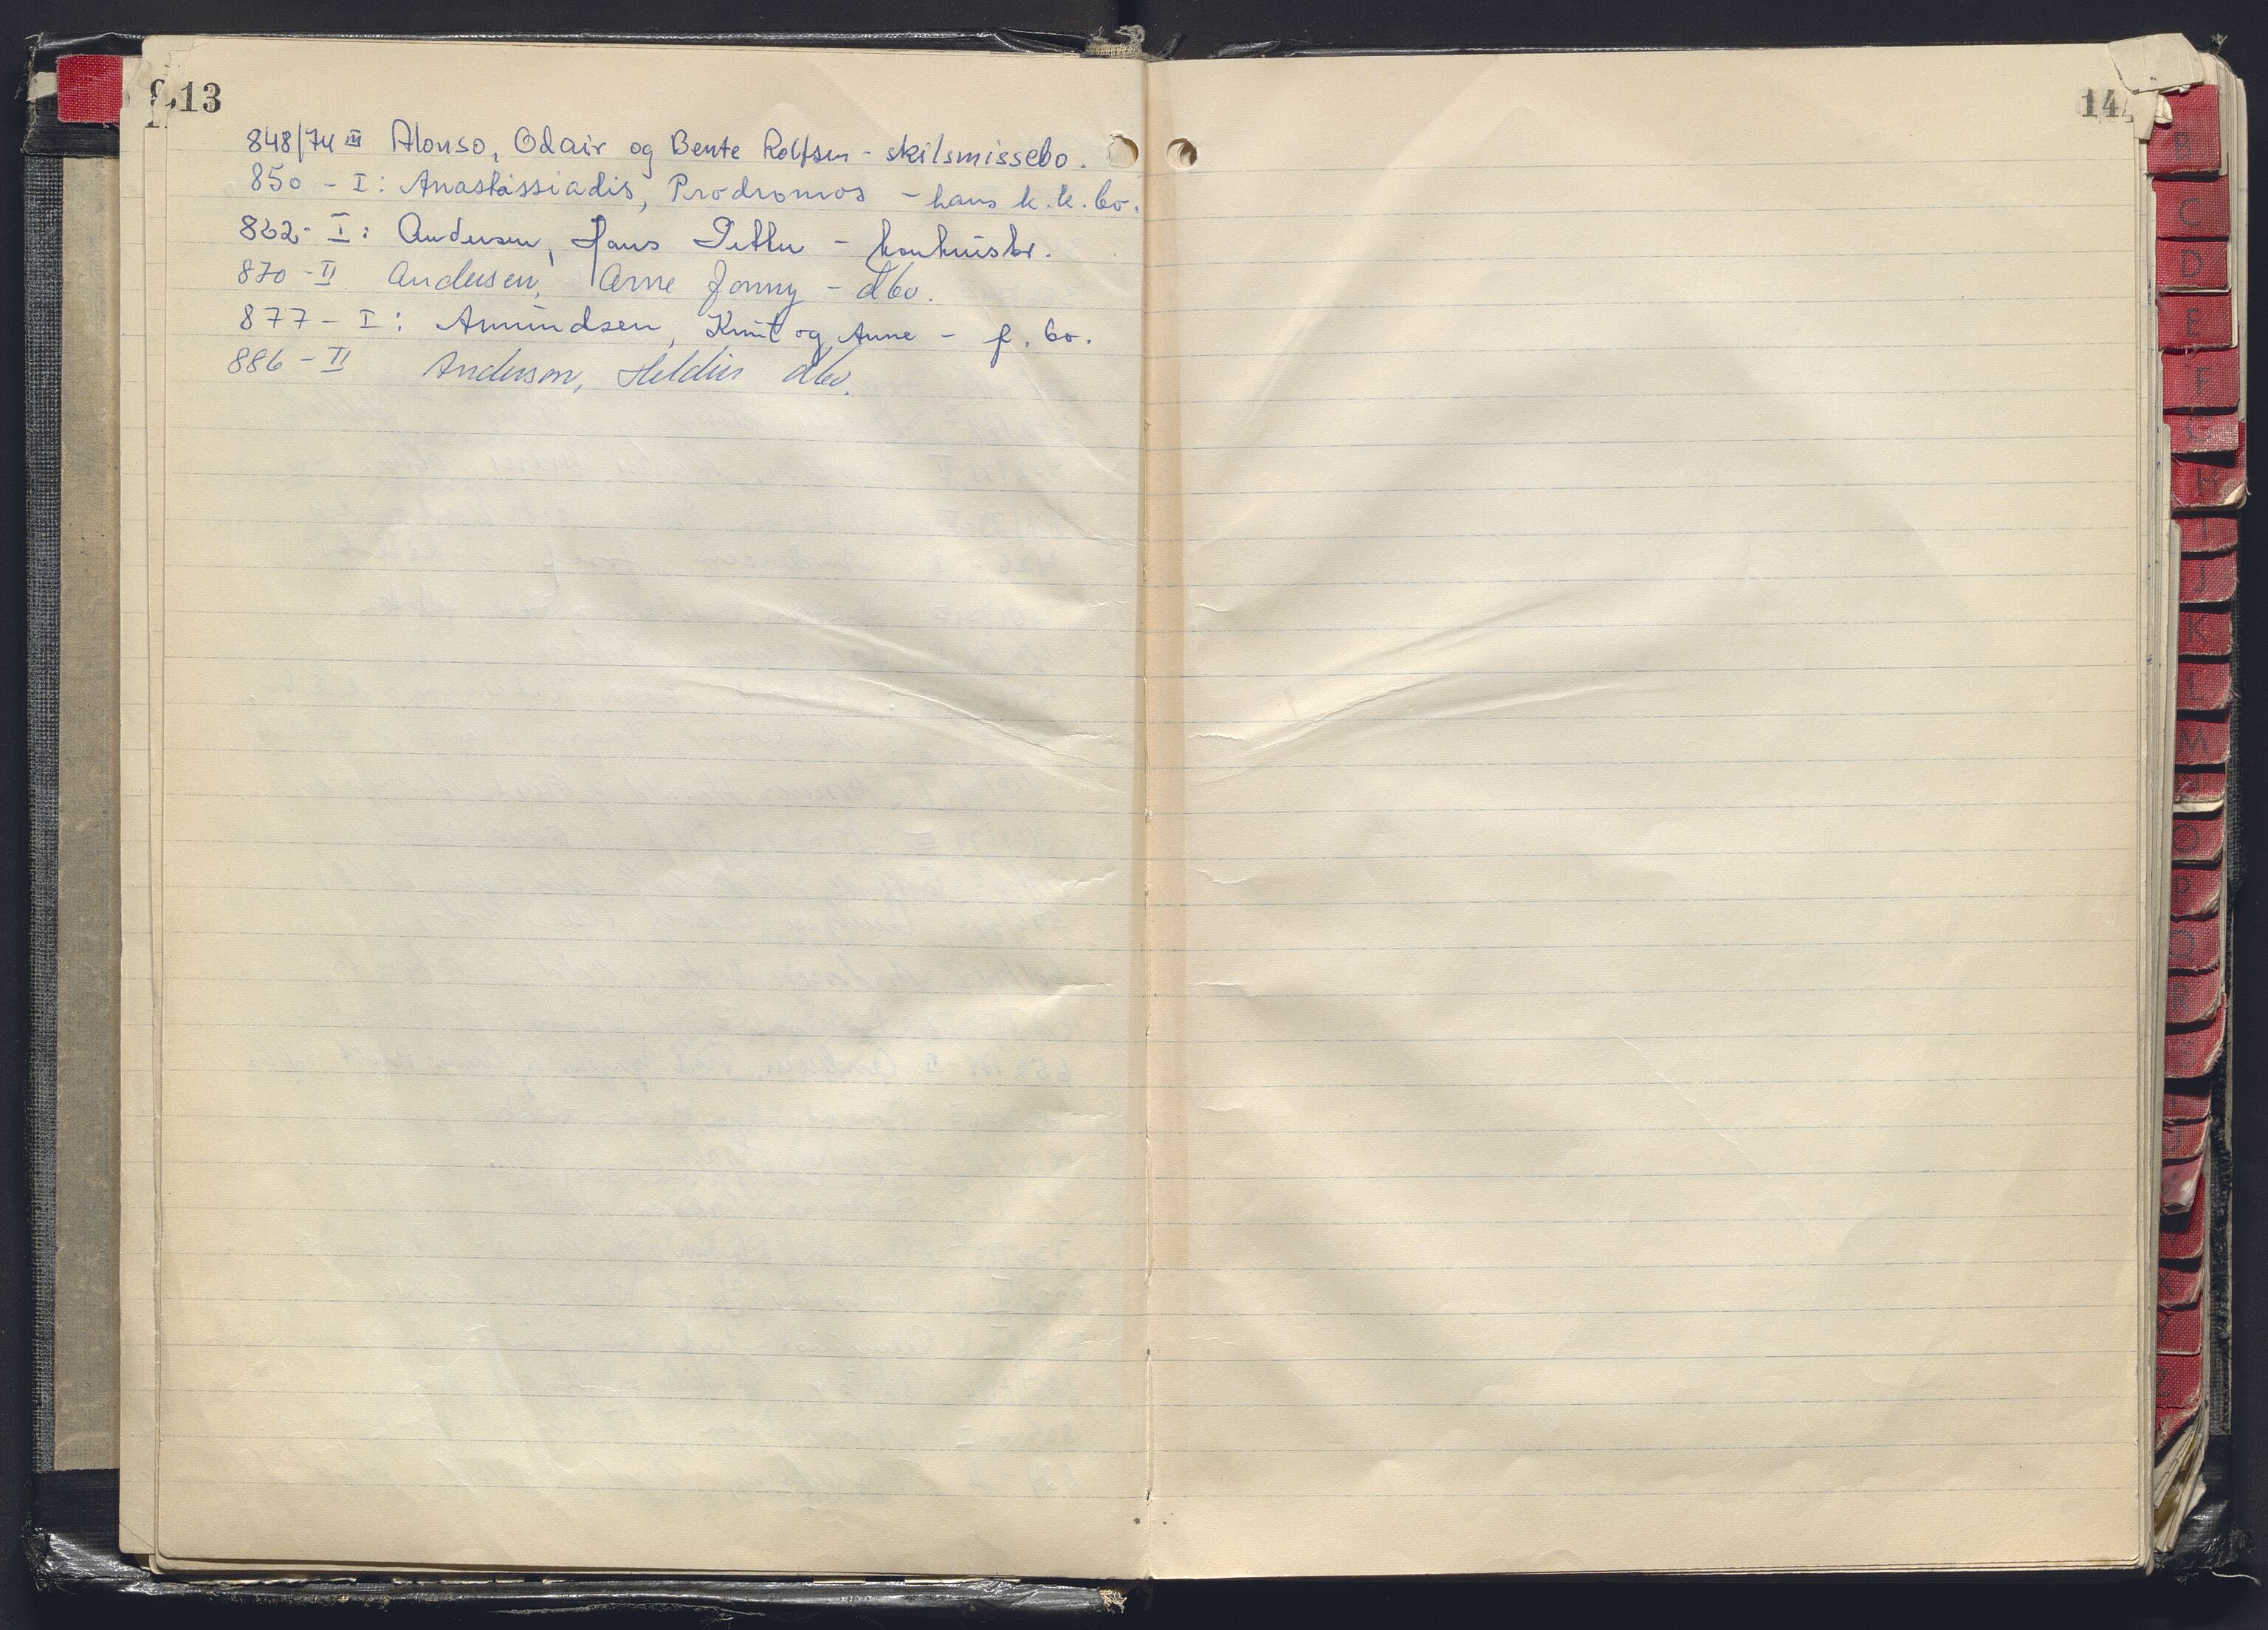 13
848/74 III Alonso, Odair og Bente Rolfsen - skilsmissebo.
850 - I: Anastassiadis, Prodromos - hans k.k.bo.
862 - I: Andersen, Hans Petter - konkursbo.
870 - II Andersen, Arne Jonny - dbo.
877 - I: Amundsen, Knut og Anne - f. bo.
886 - II Anderson, dbo.
14
B
C
D
E
F
G
H
I
J
K
L
M
O
P
Q
R